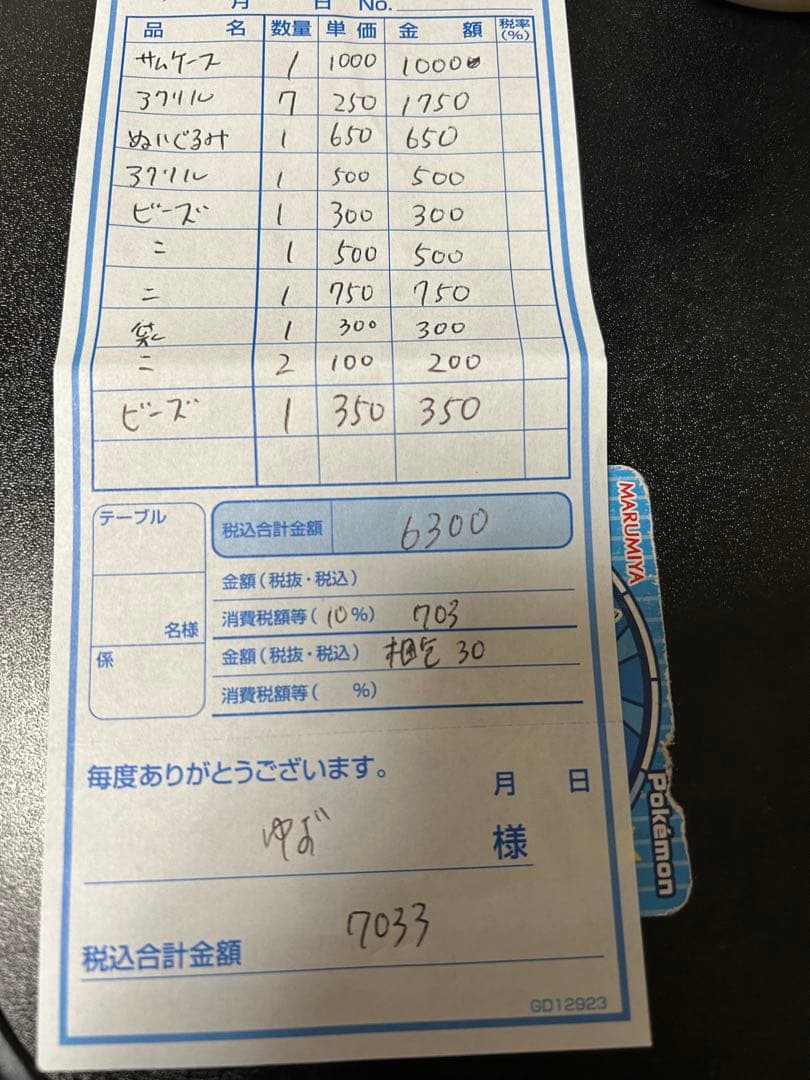 月 日 No.
品名 数量 単価 金額 税率(%)
サムケース 1 1000 1000
アクリル 7 250 1750
ぬいぐるみ 1 650 650
アクリル 1 500 500
ビーズ 1 300 300
〃 1 500 500
〃 1 750 750
袋 1 300 300
〃 2 100 200
ビーズ 1 350 350
テーブル
税込合計金額 6300
金額(税抜・税込)
名様
消費税額等(10%) 703
係
金額(税抜・税込) 30
消費税額等( %)
毎度ありがとうございます。
月 日
様
税込合計金額 7033
GD12923
MARUMIYA
Pokémon